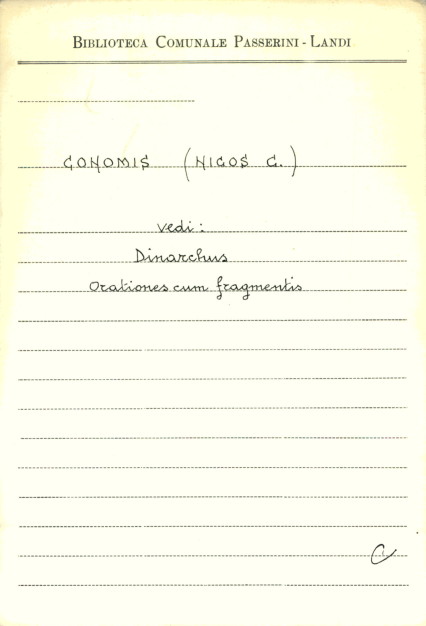 BIBLIOTECA COMUNALE PASSERINI - LANDI
CONOMIS (NICOS C.)
vedi:
Dinarchus
Orationes cum fragmentis
C